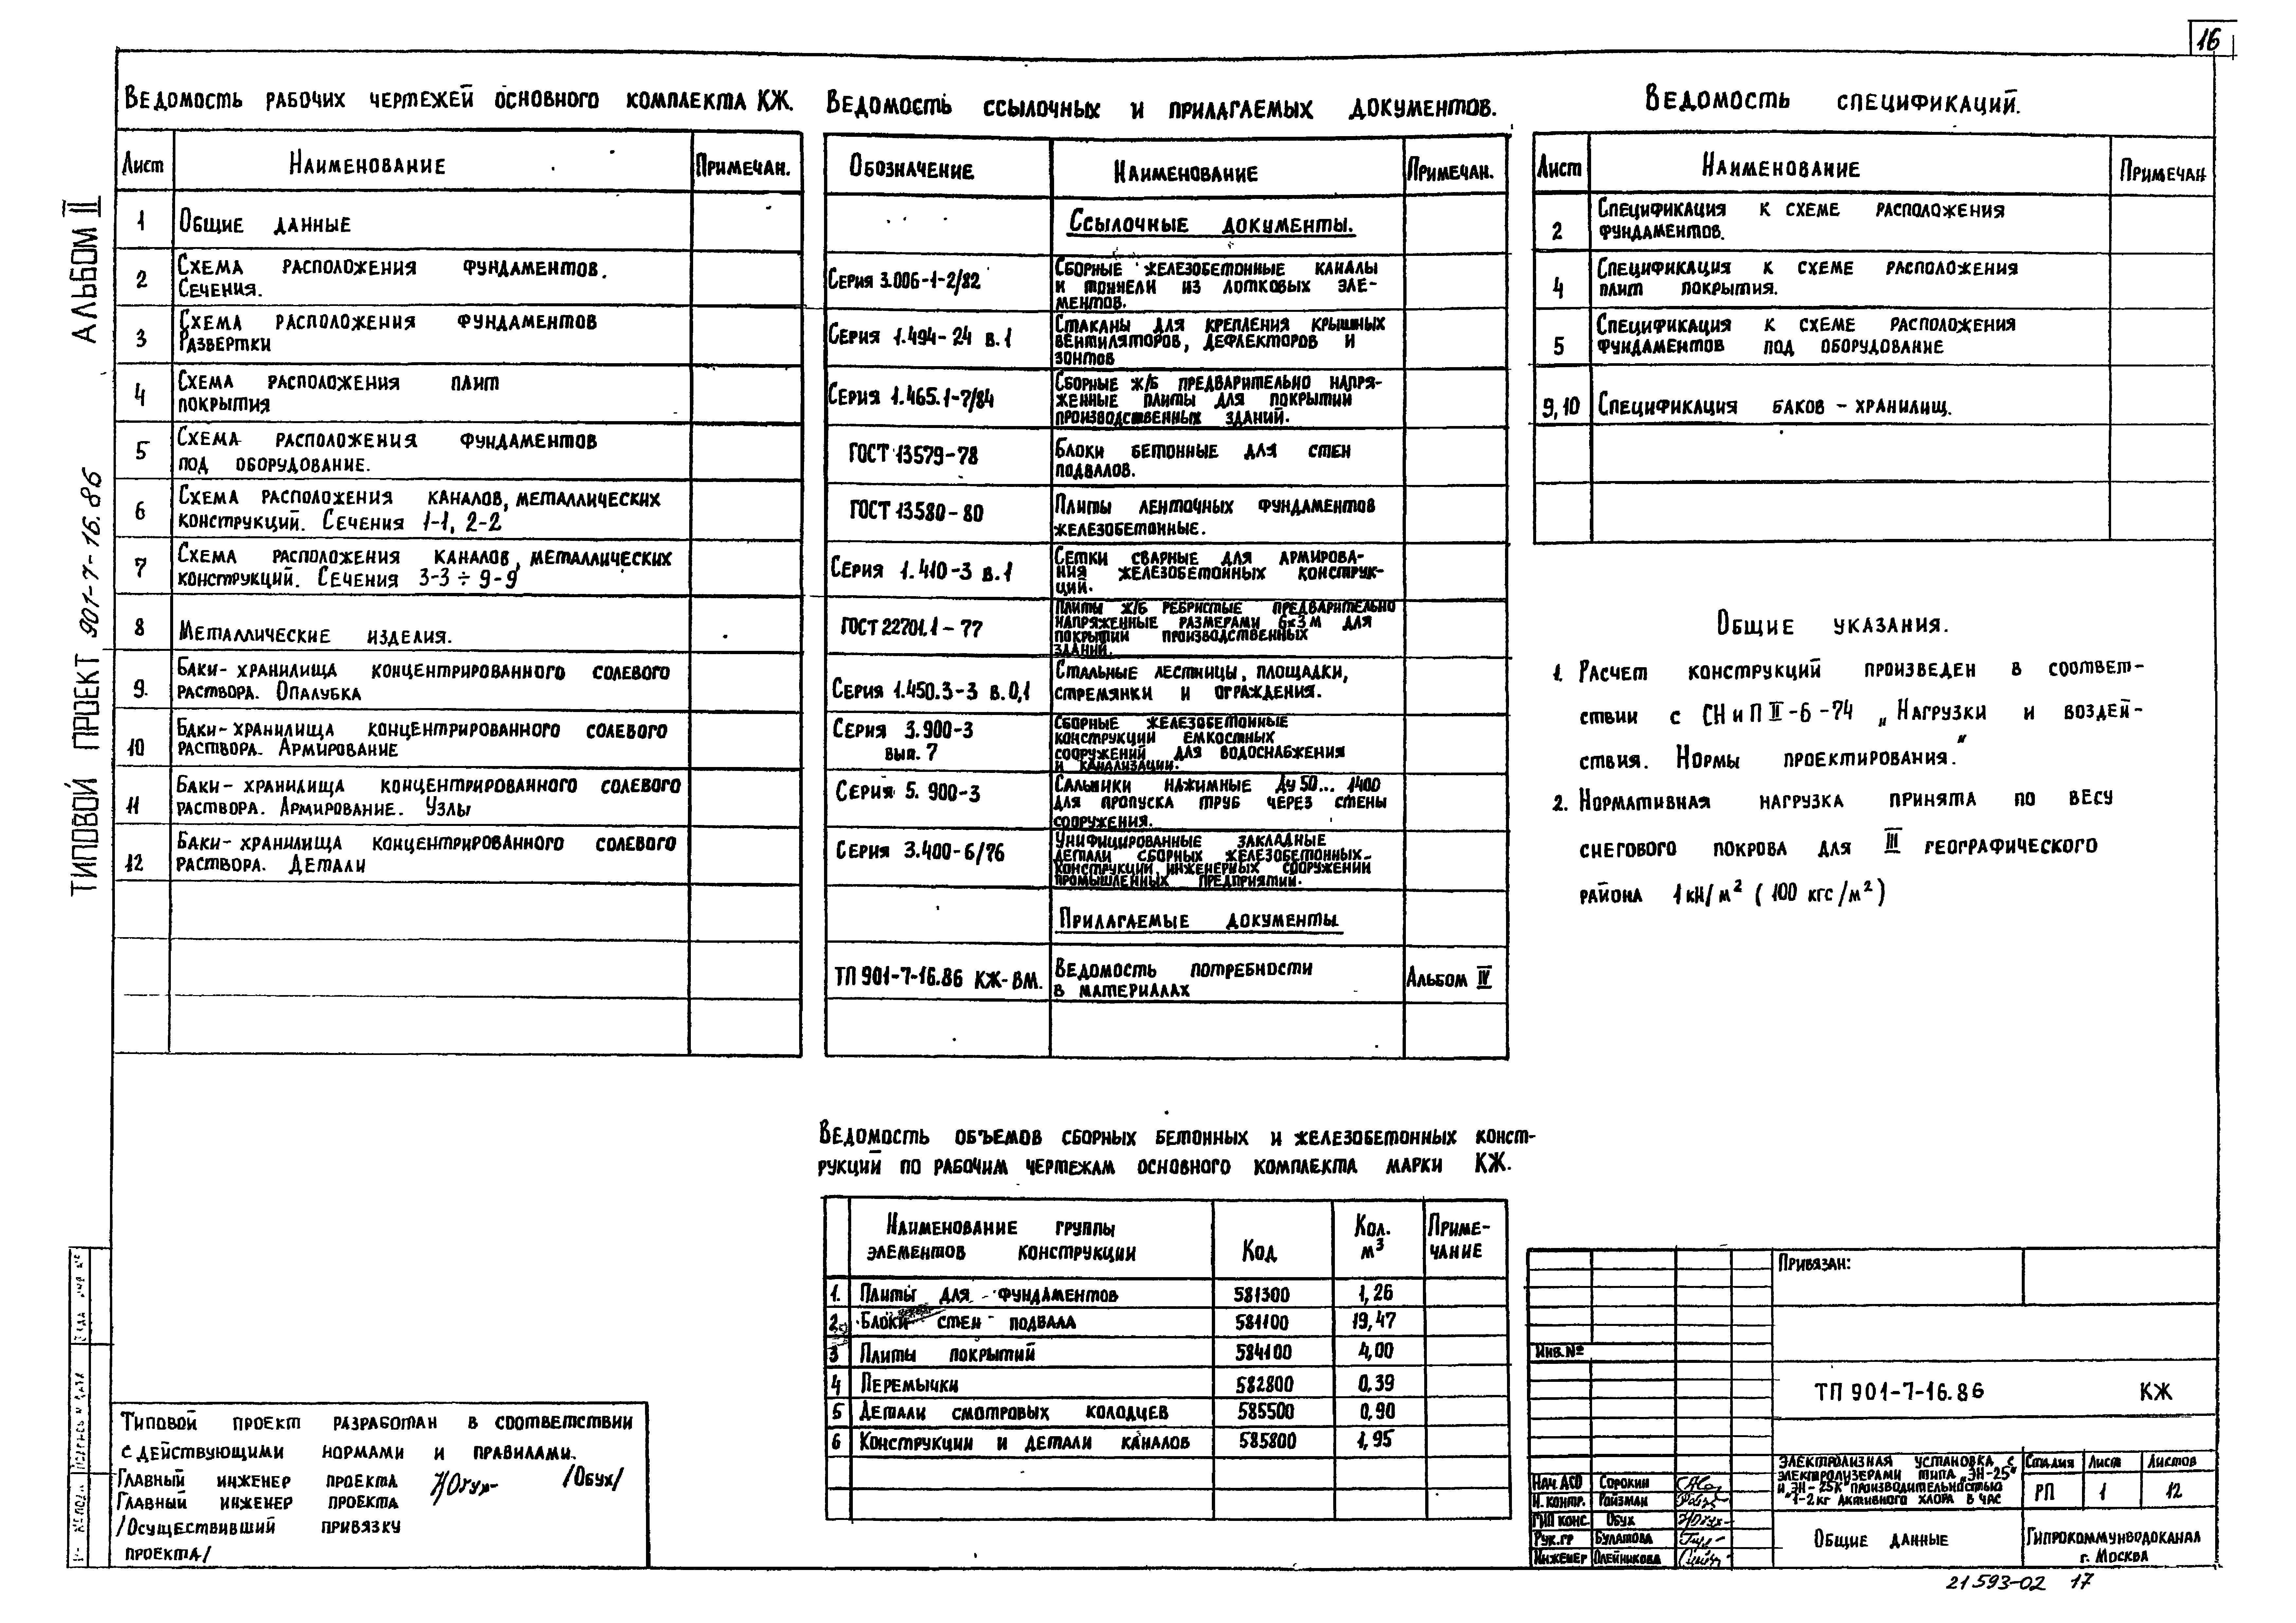 16
АЛЬБОМ II
ТИПОВОЙ ПРОЕКТ 901-7-16.86
ВЕДОМОСТЬ РАБОЧИХ ЧЕРТЕЖЕЙ ОСНОВНОГО КОМПЛЕКТА КЖ.
ЛИСТ НАИМЕНОВАНИЕ ПРИМЕЧАН.
1 ОБЩИЕ ДАННЫЕ
2 СХЕМА РАСПОЛОЖЕНИЯ ФУНДАМЕНТОВ.
СЕЧЕНИЯ.
3 СХЕМА РАСПОЛОЖЕНИЯ ФУНДАМЕНТОВ
РАЗВЕРТКИ
4 СХЕМА РАСПОЛОЖЕНИЯ ПЛИТ
ПОКРЫТИЯ
5 СХЕМА РАСПОЛОЖЕНИЯ ФУНДАМЕНТОВ
ПОД ОБОРУДОВАНИЕ.
6 СХЕМА РАСПОЛОЖЕНИЯ КАНАЛОВ, МЕТАЛЛИЧЕСКИХ
КОНСТРУКЦИЙ. СЕЧЕНИЯ 1-1, 2-2
7 СХЕМА РАСПОЛОЖЕНИЯ КАНАЛОВ, МЕТАЛЛИЧЕСКИХ
КОНСТРУКЦИЙ. СЕЧЕНИЯ 3-3 ÷ 9-9
8 МЕТАЛЛИЧЕСКИЕ ИЗДЕЛИЯ.
9. БАКИ-ХРАНИЛИЩА КОНЦЕНТРИРОВАННОГО СОЛЕВОГО
РАСТВОРА. ОПАЛУБКА
10 БАКИ-ХРАНИЛИЩА КОНЦЕНТРИРОВАННОГО СОЛЕВОГО
РАСТВОРА. АРМИРОВАНИЕ
11 БАКИ-ХРАНИЛИЩА КОНЦЕНТРИРОВАННОГО СОЛЕВОГО
РАСТВОРА. АРМИРОВАНИЕ. УЗЛЫ
12 БАКИ-ХРАНИЛИЩА КОНЦЕНТРИРОВАННОГО СОЛЕВОГО
РАСТВОРА. ДЕТАЛИ
ВЕДОМОСТЬ ССЫЛОЧНЫХ И ПРИЛАГАЕМЫХ ДОКУМЕНТОВ.
ОБОЗНАЧЕНИЕ НАИМЕНОВАНИЕ ПРИМЕЧАН.
ССЫЛОЧНЫЕ ДОКУМЕНТЫ.
СЕРИЯ 3.006-1-2/82 СБОРНЫЕ ЖЕЛЕЗОБЕТОННЫЕ КАНАЛЫ
И ТОННЕЛИ ИЗ ЛОТКОВЫХ ЭЛЕ-
МЕНТОВ.
СЕРИЯ 1.494-24 В.1 СТАКАНЫ ДЛЯ КРЕПЛЕНИЯ КРЫШНЫХ
ВЕНТИЛЯТОРОВ, ДЕФЛЕКТОРОВ И
ЗОНТОВ
СЕРИЯ 1.465.1-7/84 СБОРНЫЕ Ж/Б ПРЕДВАРИТЕЛЬНО НАПРЯ-
ЖЕННЫЕ ПЛИТЫ ДЛЯ ПОКРЫТИЙ
ПРОИЗВОДСТВЕННЫХ ЗДАНИЙ.
ГОСТ 13579-78 БЛОКИ БЕТОННЫЕ ДЛЯ СТЕН
ПОДВАЛОВ.
ГОСТ 13580-80 ПЛИТЫ ЛЕНТОЧНЫХ ФУНДАМЕНТОВ
ЖЕЛЕЗОБЕТОННЫЕ.
СЕРИЯ 1.410-3 В.1 СЕТКИ СВАРНЫЕ ДЛЯ АРМИРОВА-
НИЯ ЖЕЛЕЗОБЕТОННЫХ КОНСТРУК-
ЦИЙ.
ГОСТ 22701.1-77 ПЛИТЫ Ж/Б РЕБРИСТЫЕ ПРЕДВАРИТЕЛЬНО
НАПРЯЖЕННЫЕ РАЗМЕРАМИ 6×3 М ДЛЯ
ПОКРЫТИЙ ПРОИЗВОДСТВЕННЫХ
ЗДАНИЙ.
СЕРИЯ 1.450.3-3 В.0,1 СТАЛЬНЫЕ ЛЕСТНИЦЫ, ПЛОЩАДКИ,
СТРЕМЯНКИ И ОГРАЖДЕНИЯ.
СЕРИЯ 3.900-3
ВЫП. 7 СБОРНЫЕ ЖЕЛЕЗОБЕТОННЫЕ
КОНСТРУКЦИИ ЕМКОСТНЫХ
СООРУЖЕНИЙ ДЛЯ ВОДОСНАБЖЕНИЯ
И КАНАЛИЗАЦИИ.
СЕРИЯ 5.900-3 САЛЬНИКИ НАЖИМНЫЕ ДУ 50... 1400
ДЛЯ ПРОПУСКА ТРУБ ЧЕРЕЗ СТЕНЫ
СООРУЖЕНИЯ.
СЕРИЯ 3.400-6/76 УНИФИЦИРОВАННЫЕ ЗАКЛАДНЫЕ
ДЕТАЛИ СБОРНЫХ ЖЕЛЕЗОБЕТОННЫХ
КОНСТРУКЦИЙ ИНЖЕНЕРНЫХ СООРУЖЕНИЙ
ПРОМЫШЛЕННЫХ ПРЕДПРИЯТИЙ.
ПРИЛАГАЕМЫЕ ДОКУМЕНТЫ
ТП 901-7-16.86 КЖ-ВМ. ВЕДОМОСТЬ ПОТРЕБНОСТИ
В МАТЕРИАЛАХ АЛЬБОМ IV
ВЕДОМОСТЬ СПЕЦИФИКАЦИЙ.
ЛИСТ НАИМЕНОВАНИЕ ПРИМЕЧАН
2 СПЕЦИФИКАЦИЯ К СХЕМЕ РАСПОЛОЖЕНИЯ
ФУНДАМЕНТОВ.
4 СПЕЦИФИКАЦИЯ К СХЕМЕ РАСПОЛОЖЕНИЯ
ПЛИТ ПОКРЫТИЯ.
5 СПЕЦИФИКАЦИЯ К СХЕМЕ РАСПОЛОЖЕНИЯ
ФУНДАМЕНТОВ ПОД ОБОРУДОВАНИЕ
9,10 СПЕЦИФИКАЦИЯ БАКОВ-ХРАНИЛИЩ.
ОБЩИЕ УКАЗАНИЯ.
1. РАСЧЕТ КОНСТРУКЦИЙ ПРОИЗВЕДЕН В СООТВЕТ-
СТВИИ С СНиП II-6-74 „НАГРУЗКИ И ВОЗДЕЙ-
СТВИЯ. НОРМЫ ПРОЕКТИРОВАНИЯ.“
2. НОРМАТИВНАЯ НАГРУЗКА ПРИНЯТА ПО ВЕСУ
СНЕГОВОГО ПОКРОВА ДЛЯ III ГЕОГРАФИЧЕСКОГО
РАЙОНА 1 кН/м² (100 кгс/м²)
ВЕДОМОСТЬ ОБЪЕМОВ СБОРНЫХ БЕТОННЫХ И ЖЕЛЕЗОБЕТОННЫХ КОНСТ-
РУКЦИЙ ПО РАБОЧИМ ЧЕРТЕЖАМ ОСНОВНОГО КОМПЛЕКТА МАРКИ КЖ.
НАИМЕНОВАНИЕ ГРУППЫ
ЭЛЕМЕНТОВ КОНСТРУКЦИИ КОД КОЛ. м³ ПРИМЕ-
ЧАНИЕ
1. ПЛИТЫ ДЛЯ ФУНДАМЕНТОВ 581300 1,26
2 БЛОКИ СТЕН ПОДВАЛА 581100 19,47
3 ПЛИТЫ ПОКРЫТИЙ 584100 4,00
4 ПЕРЕМЫЧКИ 582800 0.39
5 ДЕТАЛИ СМОТРОВЫХ КОЛОДЦЕВ 585500 0,90
6 КОНСТРУКЦИИ И ДЕТАЛИ КАНАЛОВ 585800 1,95
ТИПОВОЙ ПРОЕКТ РАЗРАБОТАН В СООТВЕТСТВИИ
С ДЕЙСТВУЮЩИМИ НОРМАМИ И ПРАВИЛАМИ.
ГЛАВНЫЙ ИНЖЕНЕР ПРОЕКТА /ОБУХ/
ГЛАВНЫЙ ИНЖЕНЕР ПРОЕКТА
/ОСУЩЕСТВИВШИЙ ПРИВЯЗКУ
ПРОЕКТА/
ПРИВЯЗАН:
ИНВ.№
ТП 901-7-16.86 КЖ
НАЧ АСО СОРОКИН
Н. КОНТР. РОЙЗМАН
ГИП КОНС. ОБУХ
РУК.ГР БУЛАТОВА
ИНЖЕНЕР ОЛЕЙНИКОВА
ЭЛЕКТРОЛИЗНАЯ УСТАНОВКА С
ЭЛЕКТРОЛИЗЕРАМИ ТИПА „ЭН-25“
И „ЭН-25К“ ПРОИЗВОДИТЕЛЬНОСТЬЮ
1-2 кг АКТИВНОГО ХЛОРА В ЧАС
СТАДИЯ ЛИСТ ЛИСТОВ
РП 1 12
ОБЩИЕ ДАННЫЕ
ГИПРОКОММУНВОДОКАНАЛ
г. МОСКВА
21593-02 17